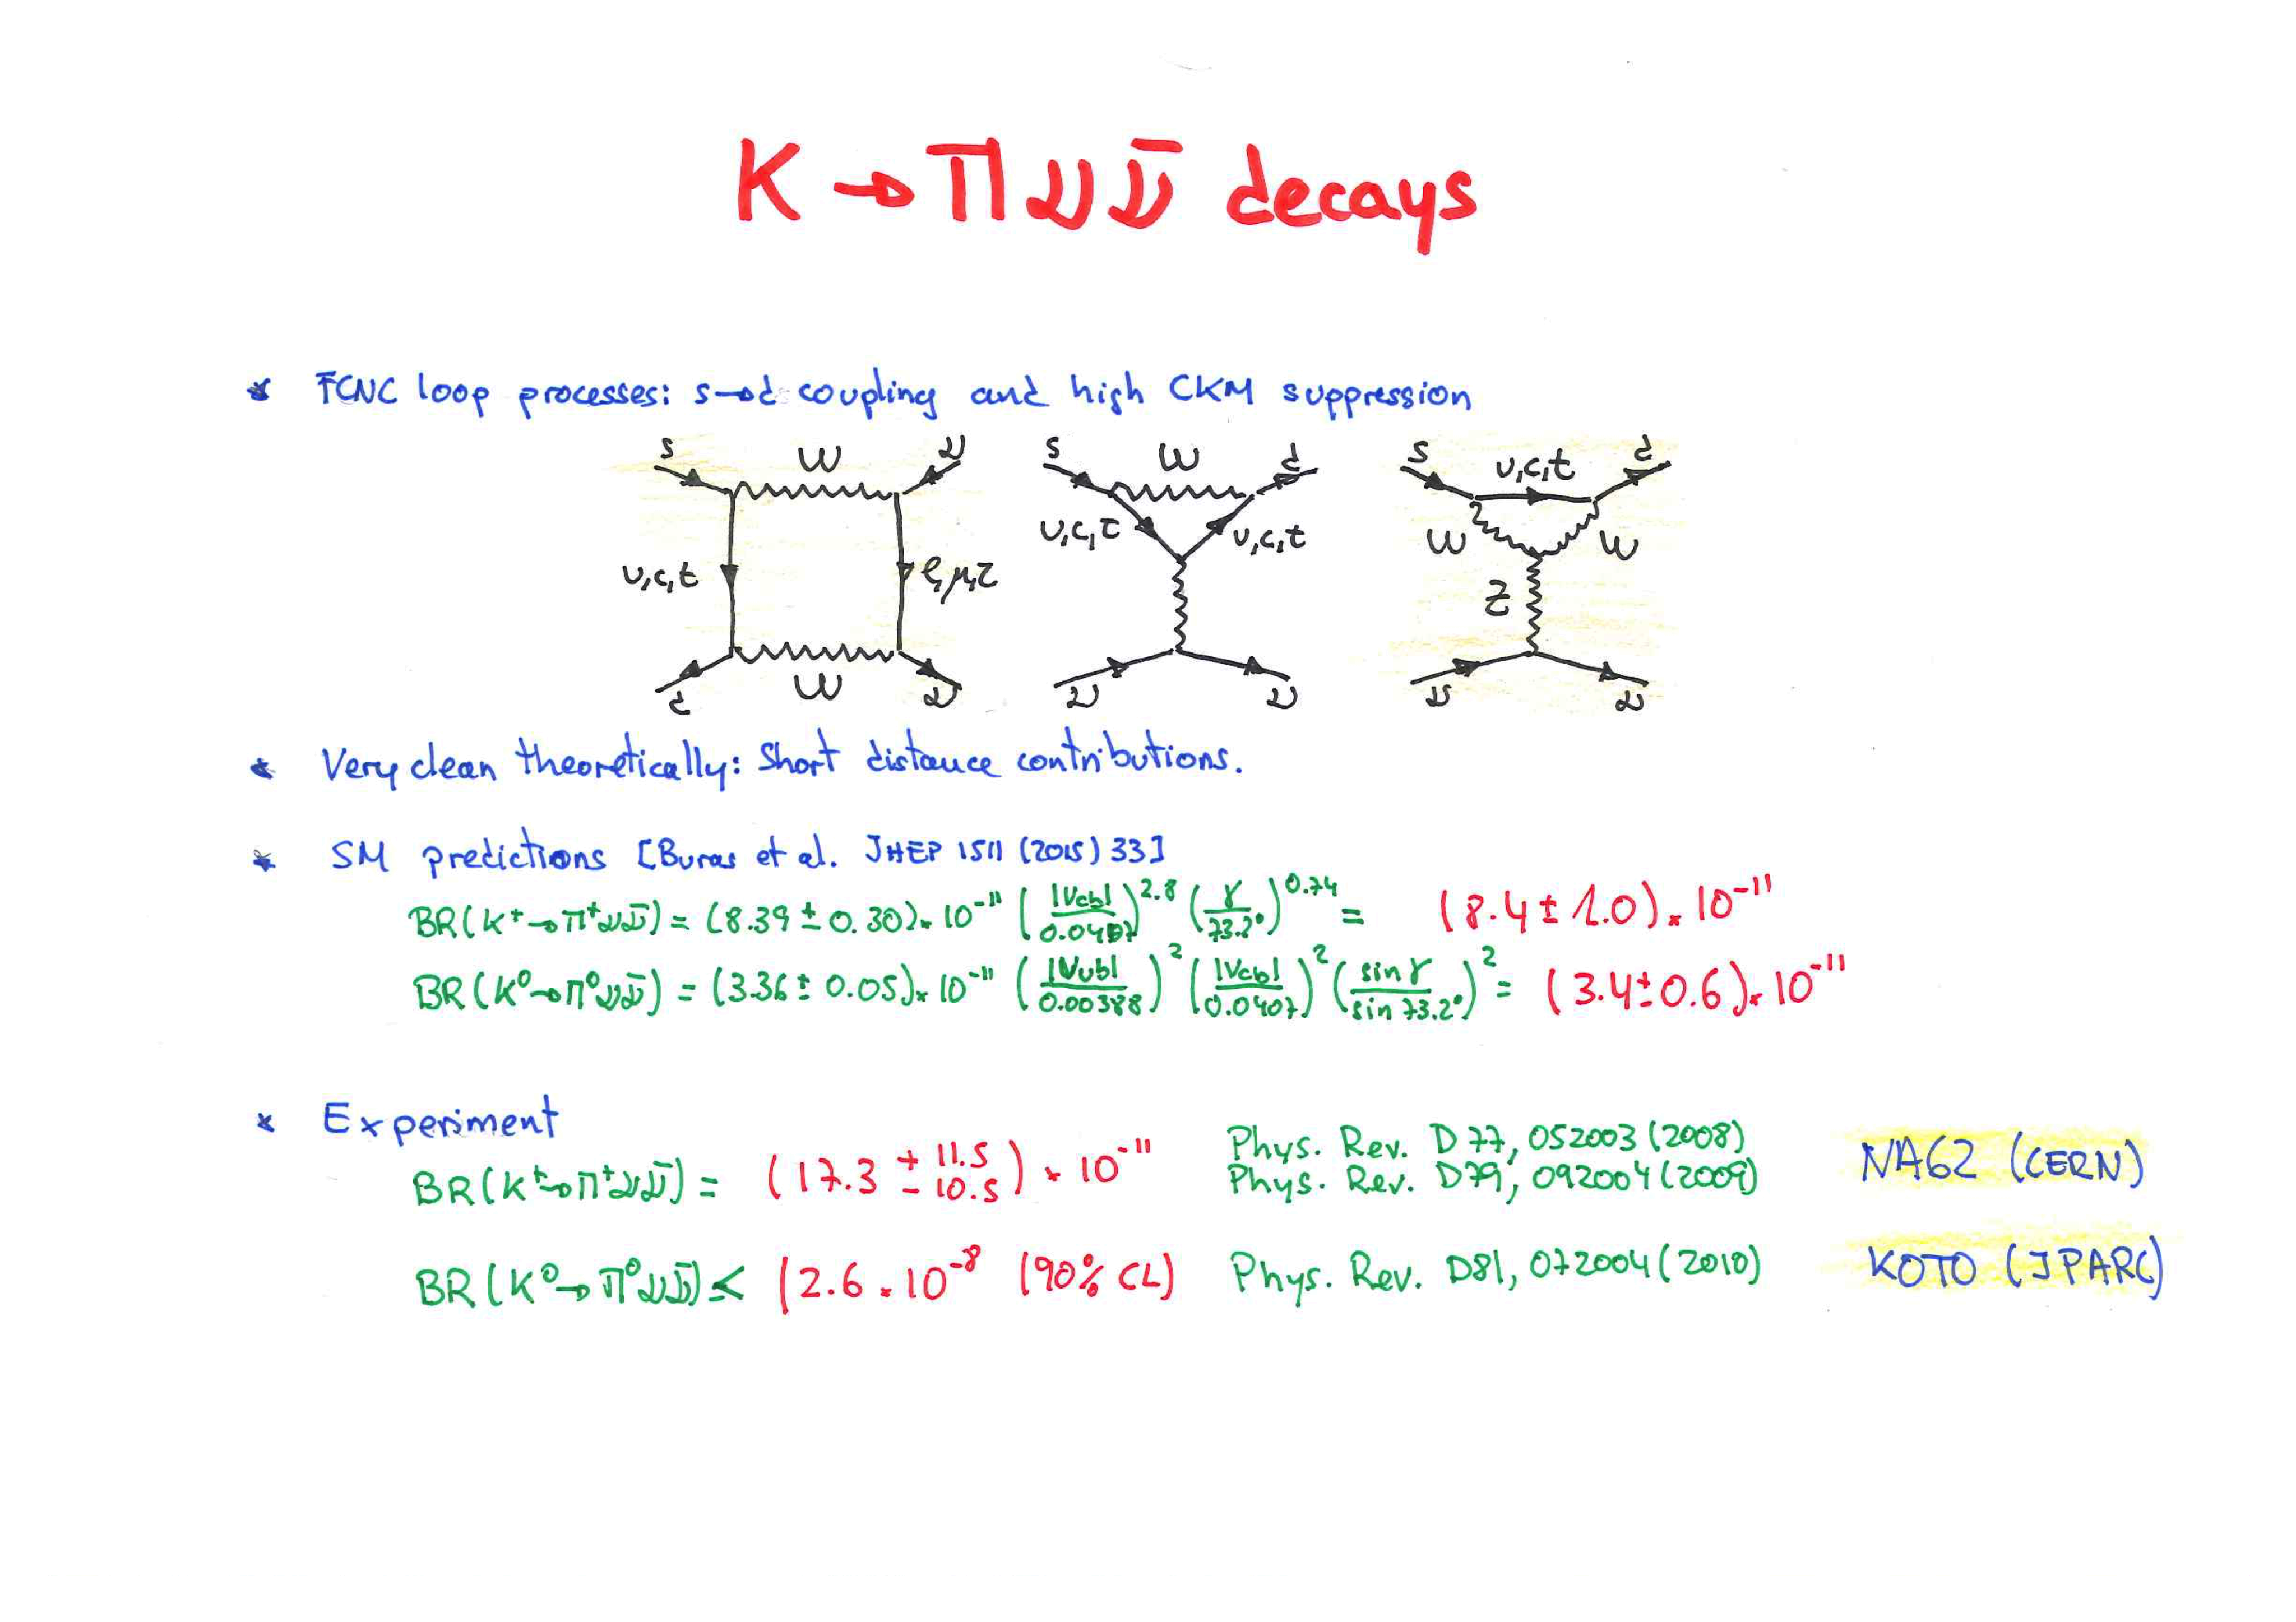 K → π ν ν̄ decays
* FCNC loop processes: s→d coupling and high CKM suppression
s W ν
u,c,t e,μ,τ
d W ν
s W d
u,c,t u,c,t
ν ν
s u,c,t d
W W
Z
ν ν
* Very clean theoretically: Short distance contributions.
* SM predictions [Buras et al. JHEP 1511 (2015) 33]
BR(K⁺→π⁺νν̄) = (8.39 ± 0.30) × 10⁻¹¹ (|Vcb|/0.0407)^2.8 (γ/73.2°)^0.74 = (8.4 ± 1.0) × 10⁻¹¹
BR(K⁰→π⁰νν̄) = (3.36 ± 0.05) × 10⁻¹¹ (|Vub|/0.00388)² (|Vcb|/0.0407)² (sin γ/sin 73.2°)² = (3.4 ± 0.6) × 10⁻¹¹
* Experiment
BR(K⁺→π⁺νν̄) = (17.3 +11.5 −10.5) × 10⁻¹¹ Phys. Rev. D 77, 052003 (2008)
Phys. Rev. D79, 092004 (2009) NA62 (CERN)
BR(K⁰→π⁰νν̄) < (2.6 × 10⁻⁸ (90% CL) Phys. Rev. D81, 072004 (2010) KOTO (JPARC)